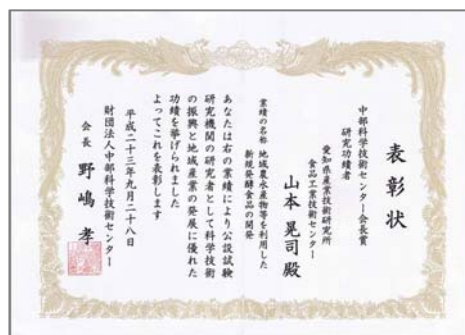 表彰状
中部科学技術センター会長賞
研究功績者
愛知県産業技術研究所
食品工業技術センター
山本晃司殿
業績の名称 地域農水産物等を利用した
新規発酵食品の開発
あなたは右の業績により公設試験
研究機関の研究者として科学技術
の振興と地域産業の発展に優れた
功績を挙げられました
よってこれを表彰します
平成二十三年九月二十八日
財団法人中部科学技術センター
会長 野嶋孝